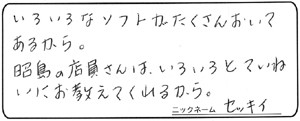 いろいろなソフトがたくさんおいて
あるから。
昭島の店員さんは、いろいろとていね
いにお教えてくれるから。
ニックネーム セッキイ